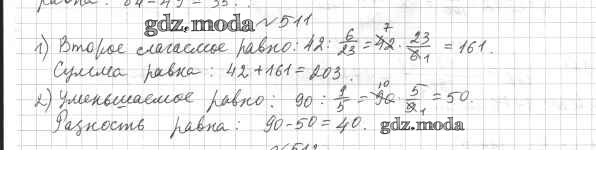 равна: 84-49=35.
gdz.moda №511
1) Второе слагаемое равно: 42 : 6/23 = 42 7 · 23/6 1 = 161.
Сумма равна: 42+161=203.
2) Уменьшаемое равно: 90 : 9/5 = 90 10 · 5/9 1 = 50.
Разность равна: 90-50=40. gdz.moda